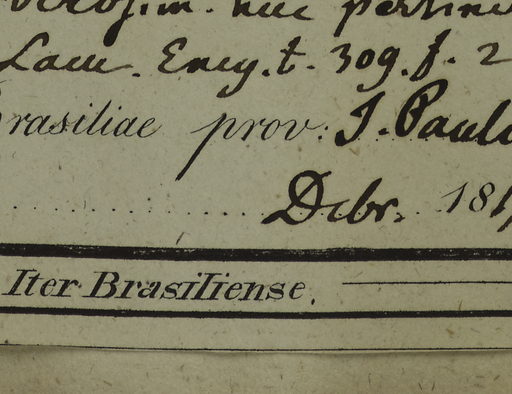 verosim. huc pertine
Lam. Ency. t. 309. f. 2
Brasiliae prov: S. Paulo
Dcbr. 181
Iter Brasiliense.